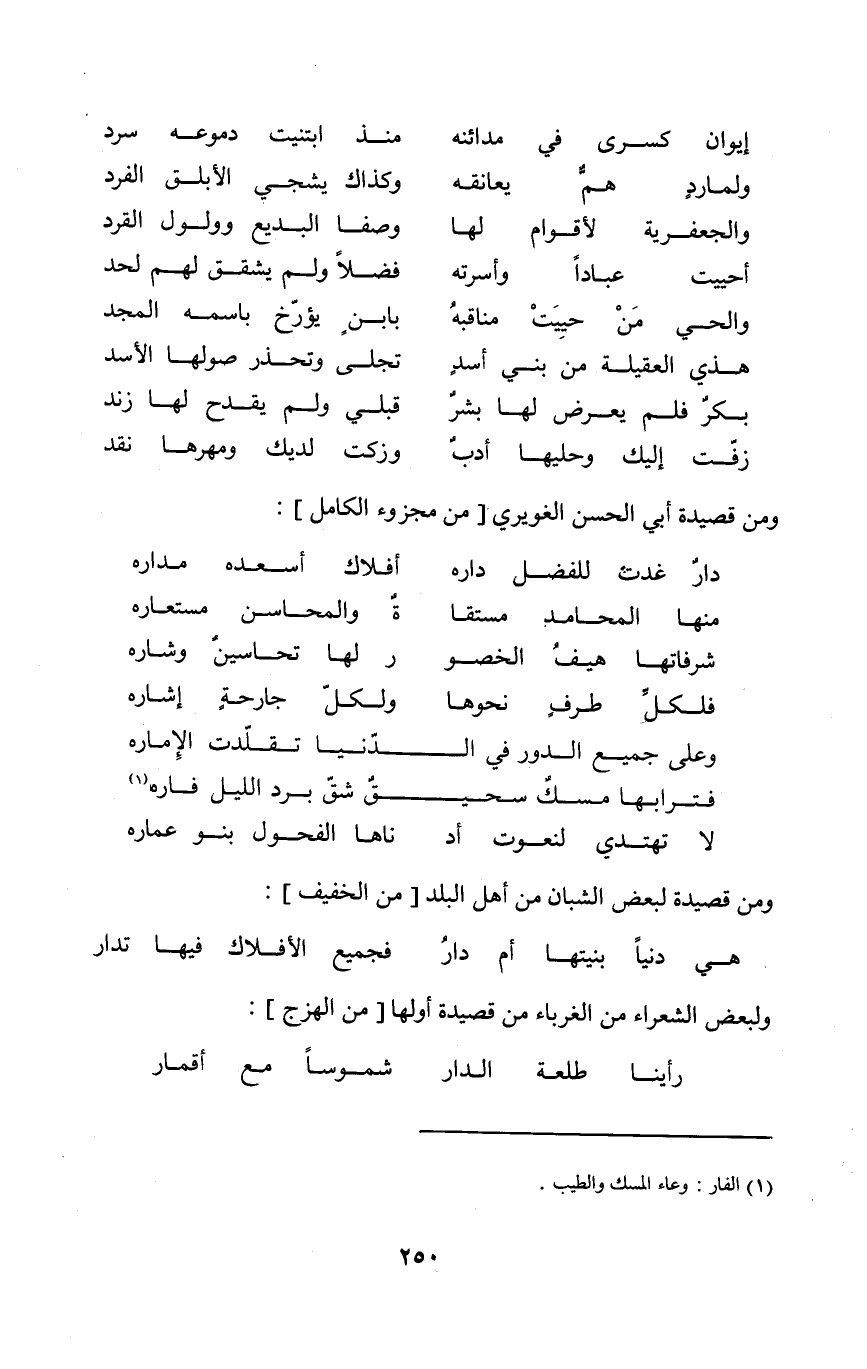 إيوان كسرى في مدائنه منذ ابتنيت دموعه سرد
ولماردٍ همٌّ يعانقه وكذاك يشجي الأبلق الفرد
والجعفرية لأقوام لها وصفا البديع وولول القرد
أحييت عباداً وأسرته فضلاً ولم يشقق لهم لحد
والحي مَنْ حيِيَتْ مناقبهُ بابنٍ يؤرّخ باسمه المجد
هذي العقيلة من بني أسدٍ تجلى وتحذر صولها الأسد
بكرٌ فلم يعرض لها بشرٌ قبلي ولم يقدح لها زند
زفّت إليك وحليها أدبٌ وزكت لديك ومهرها نقد
ومن قصيدة أبي الحسن الغويري [ من مجزوء الكامل ] :
دارٌ غدت للفضل داره أفلاك أسعده مداره
منها المحامد مستقا ةٌ والمحاسن مستعاره
شرفاتها هيفُ الخصو ر لها تحاسينٌ وشاره
فلكلِّ طرفٍ نحوها ولكلّ جارحةٍ إشاره
وعلى جميع الدور في الـدّنيا تقلّدت الإماره
فترابها مسكٌ سحيـقٌ شقّ برد الليل فاره(١)
لا تهتدي لنعوت أد ناها الفحول بنو عماره
ومن قصيدة لبعض الشبان من أهل البلد [ من الخفيف ] :
هي دنياً بنيتها أم دارُ فجميع الأفلاك فيها تدار
ولبعض الشعراء من الغرباء من قصيدة أولها [ من الهزج ] :
رأينا طلعة الدار شموساً مع أقمار
(١) الفار : وعاء المسك والطيب .
٢٥٠